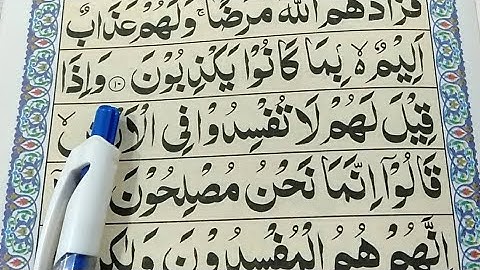 فَزَادَهُمُ اللّٰهُ مَرَضًا ۚ وَلَهُمْ عَذَابٌ
اَلِيْمٌۢ ۙ۬ بِمَا كَانُوْا يَكْذِبُوْنَ ﴿۱۰﴾ وَاِذَا
قِيْلَ لَهُمْ لَا تُفْسِدُوْا فِى
قَالُوْٓا اِنَّمَا نَحْنُ مُصْلِحُوْنَ
اِنَّهُمْ هُمُ الْمُفْسِدُوْنَ وَلٰكِنْ